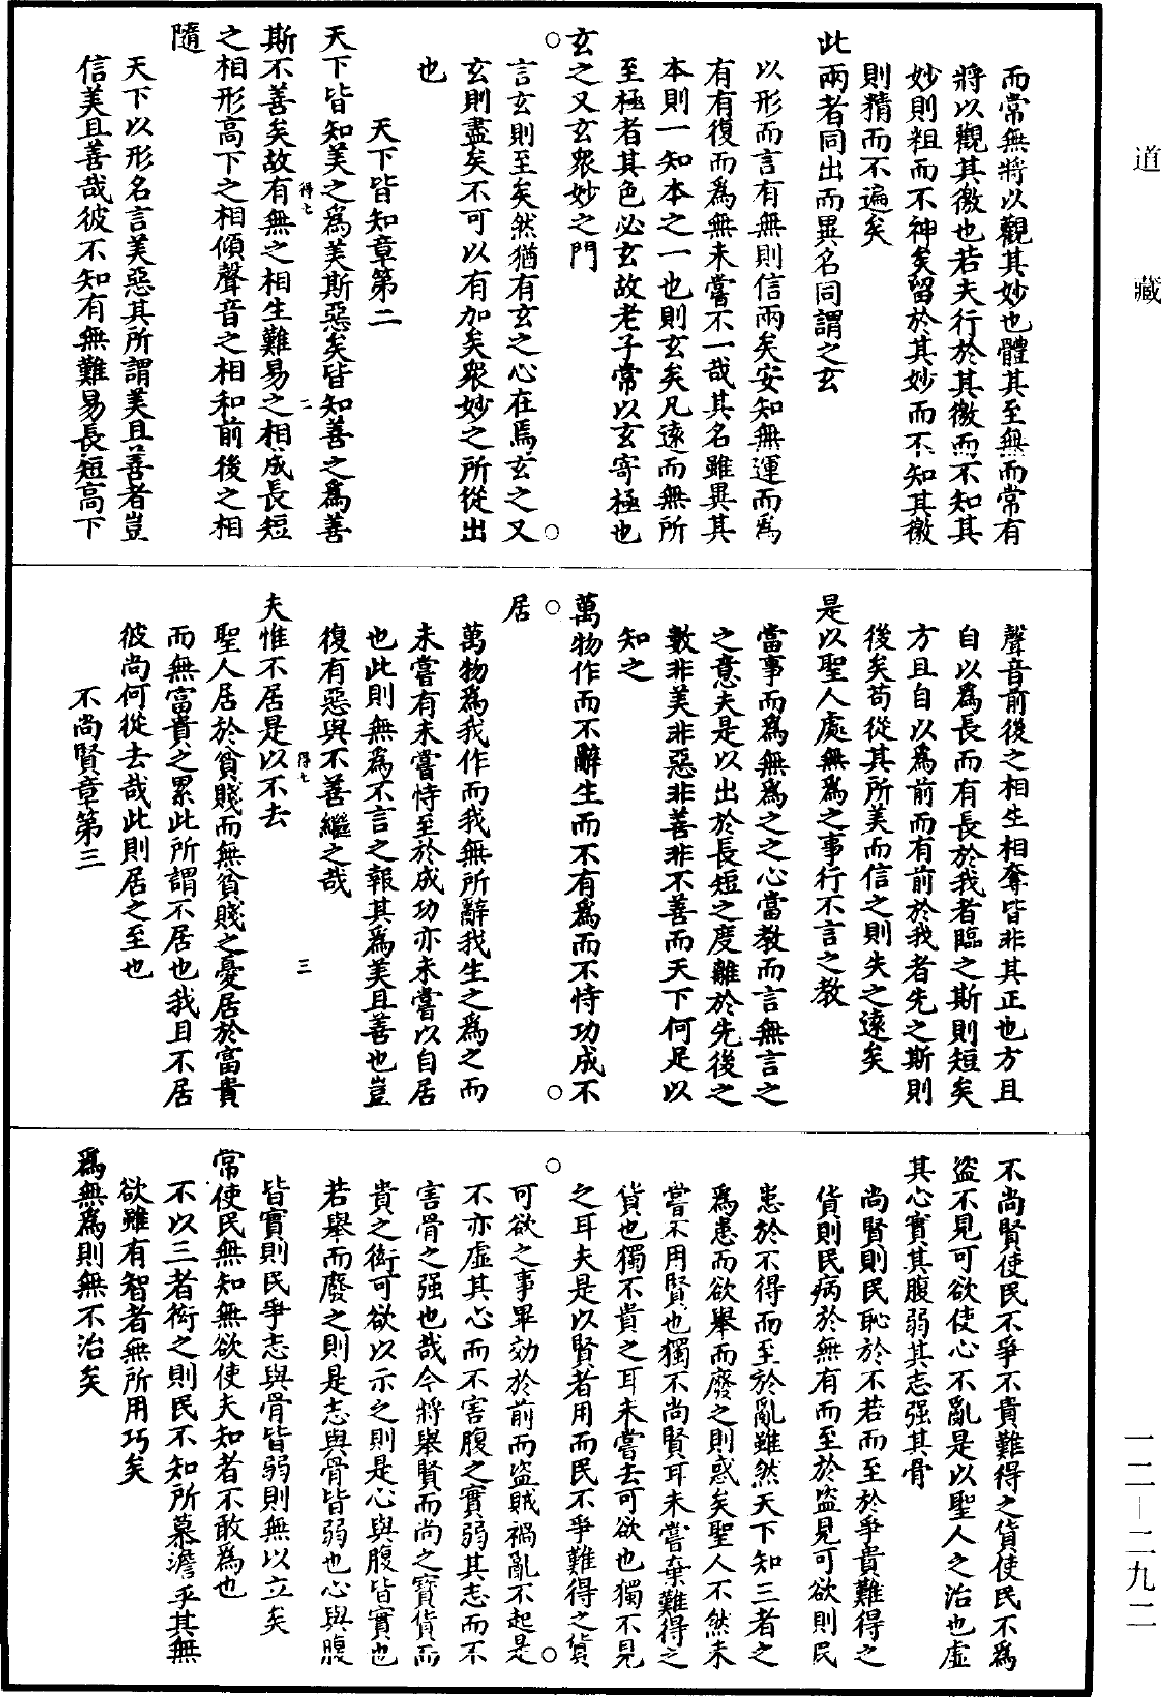 道藏
而常無將以觀其妙也體其至無而常有
將以觀其徼也若夫行於其徼而不知其
妙則粗而不神矣留於其妙而不知其徼
則精而不遍矣
此兩者同出而異名同謂之玄
以形而言有無則信兩矣安知無運而為
有有復而為無未嘗不一哉其名雖異其
本則一知本之一也則玄矣凡遠而無所
至極者其色必玄故老子常以玄寄極也
玄之又玄衆妙之門
言玄則至矣然猶有玄之心在焉玄之又
玄則盡矣不可以有加矣衆妙之所從出
也
天下皆知章第二
天下皆知美之為美斯惡矣皆知善之為善
得七
二
斯不善矣故有無之相生難易之相成長短
之相形高下之相傾聲音之相和前後之相
隨
天下以形名言美惡其所謂美且善者豈
信美且善哉彼不知有無難易長短高下
聲音前後之相生相奪皆非其正也方且
自以為長而有長於我者臨之斯則短矣
方且自以為前而有前於我者先之斯則
後矣苟從其所美而信之則失之遠矣
是以聖人處無為之事行不言之教
當事而為無為之之心當教而言無言之
之意夫是以出於長短之度離於先後之
數非美非惡非善非不善而天下何足以
知之
萬物作而不辭生而不有為而不恃功成不
居
萬物為我作而我無所辭我生之為之而
未嘗有未嘗恃至於成功亦未嘗以自居
也此則無為不言之報其為美且善也豈
復有惡與不善繼之哉
得七
三
夫惟不居是以不去
聖人居於貧賤而無貧賤之憂居於富貴
而無富貴之累此所謂不居也我且不居
彼尚何從去哉此則居之至也
不尚賢章第三
不尚賢使民不爭不貴難得之貨使民不為
盜不見可欲使心不亂是以聖人之治也虛
其心實其腹弱其志强其骨
尚賢則民恥於不若而至於爭貴難得之
貨則民病於無有而至於盜見可欲則民
患於不得而至於亂雖然天下知三者之
為患而欲舉而廢之則惑矣聖人不然未
嘗不用賢也獨不尚賢耳未嘗棄難得之
貨也獨不貴之耳未嘗去可欲也獨不見
之耳夫是以賢者用而民不爭難得之貨
可欲之事畢効於前而盜賊禍亂不起是
不亦虛其心而不害腹之實弱其志而不
害骨之强也哉今將舉賢而尚之寶貨而
貴之衒可欲以示之則是心與腹皆實也
若舉而廢之則是志與骨皆弱也心與腹
皆實則民爭志與骨皆弱則無以立矣
常使民無知無欲使夫知者不敢為也
不以三者衒之則民不知所慕澹乎其無
欲雖有智者無所用巧矣
為無為則無不治矣
一二—二九二